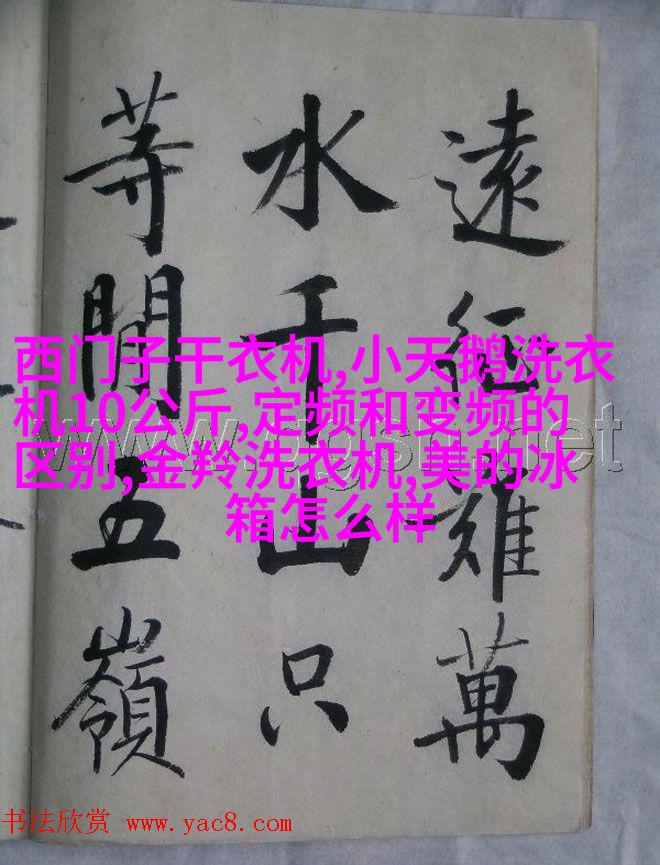 遠征難萬
水千山只
等閒五嶺
西门子干衣机,小天鹅洗衣
机10公斤,定频和变频的
区别,金羚洗衣机,美的冰
箱怎么样
书法欣赏 www.yac8.com